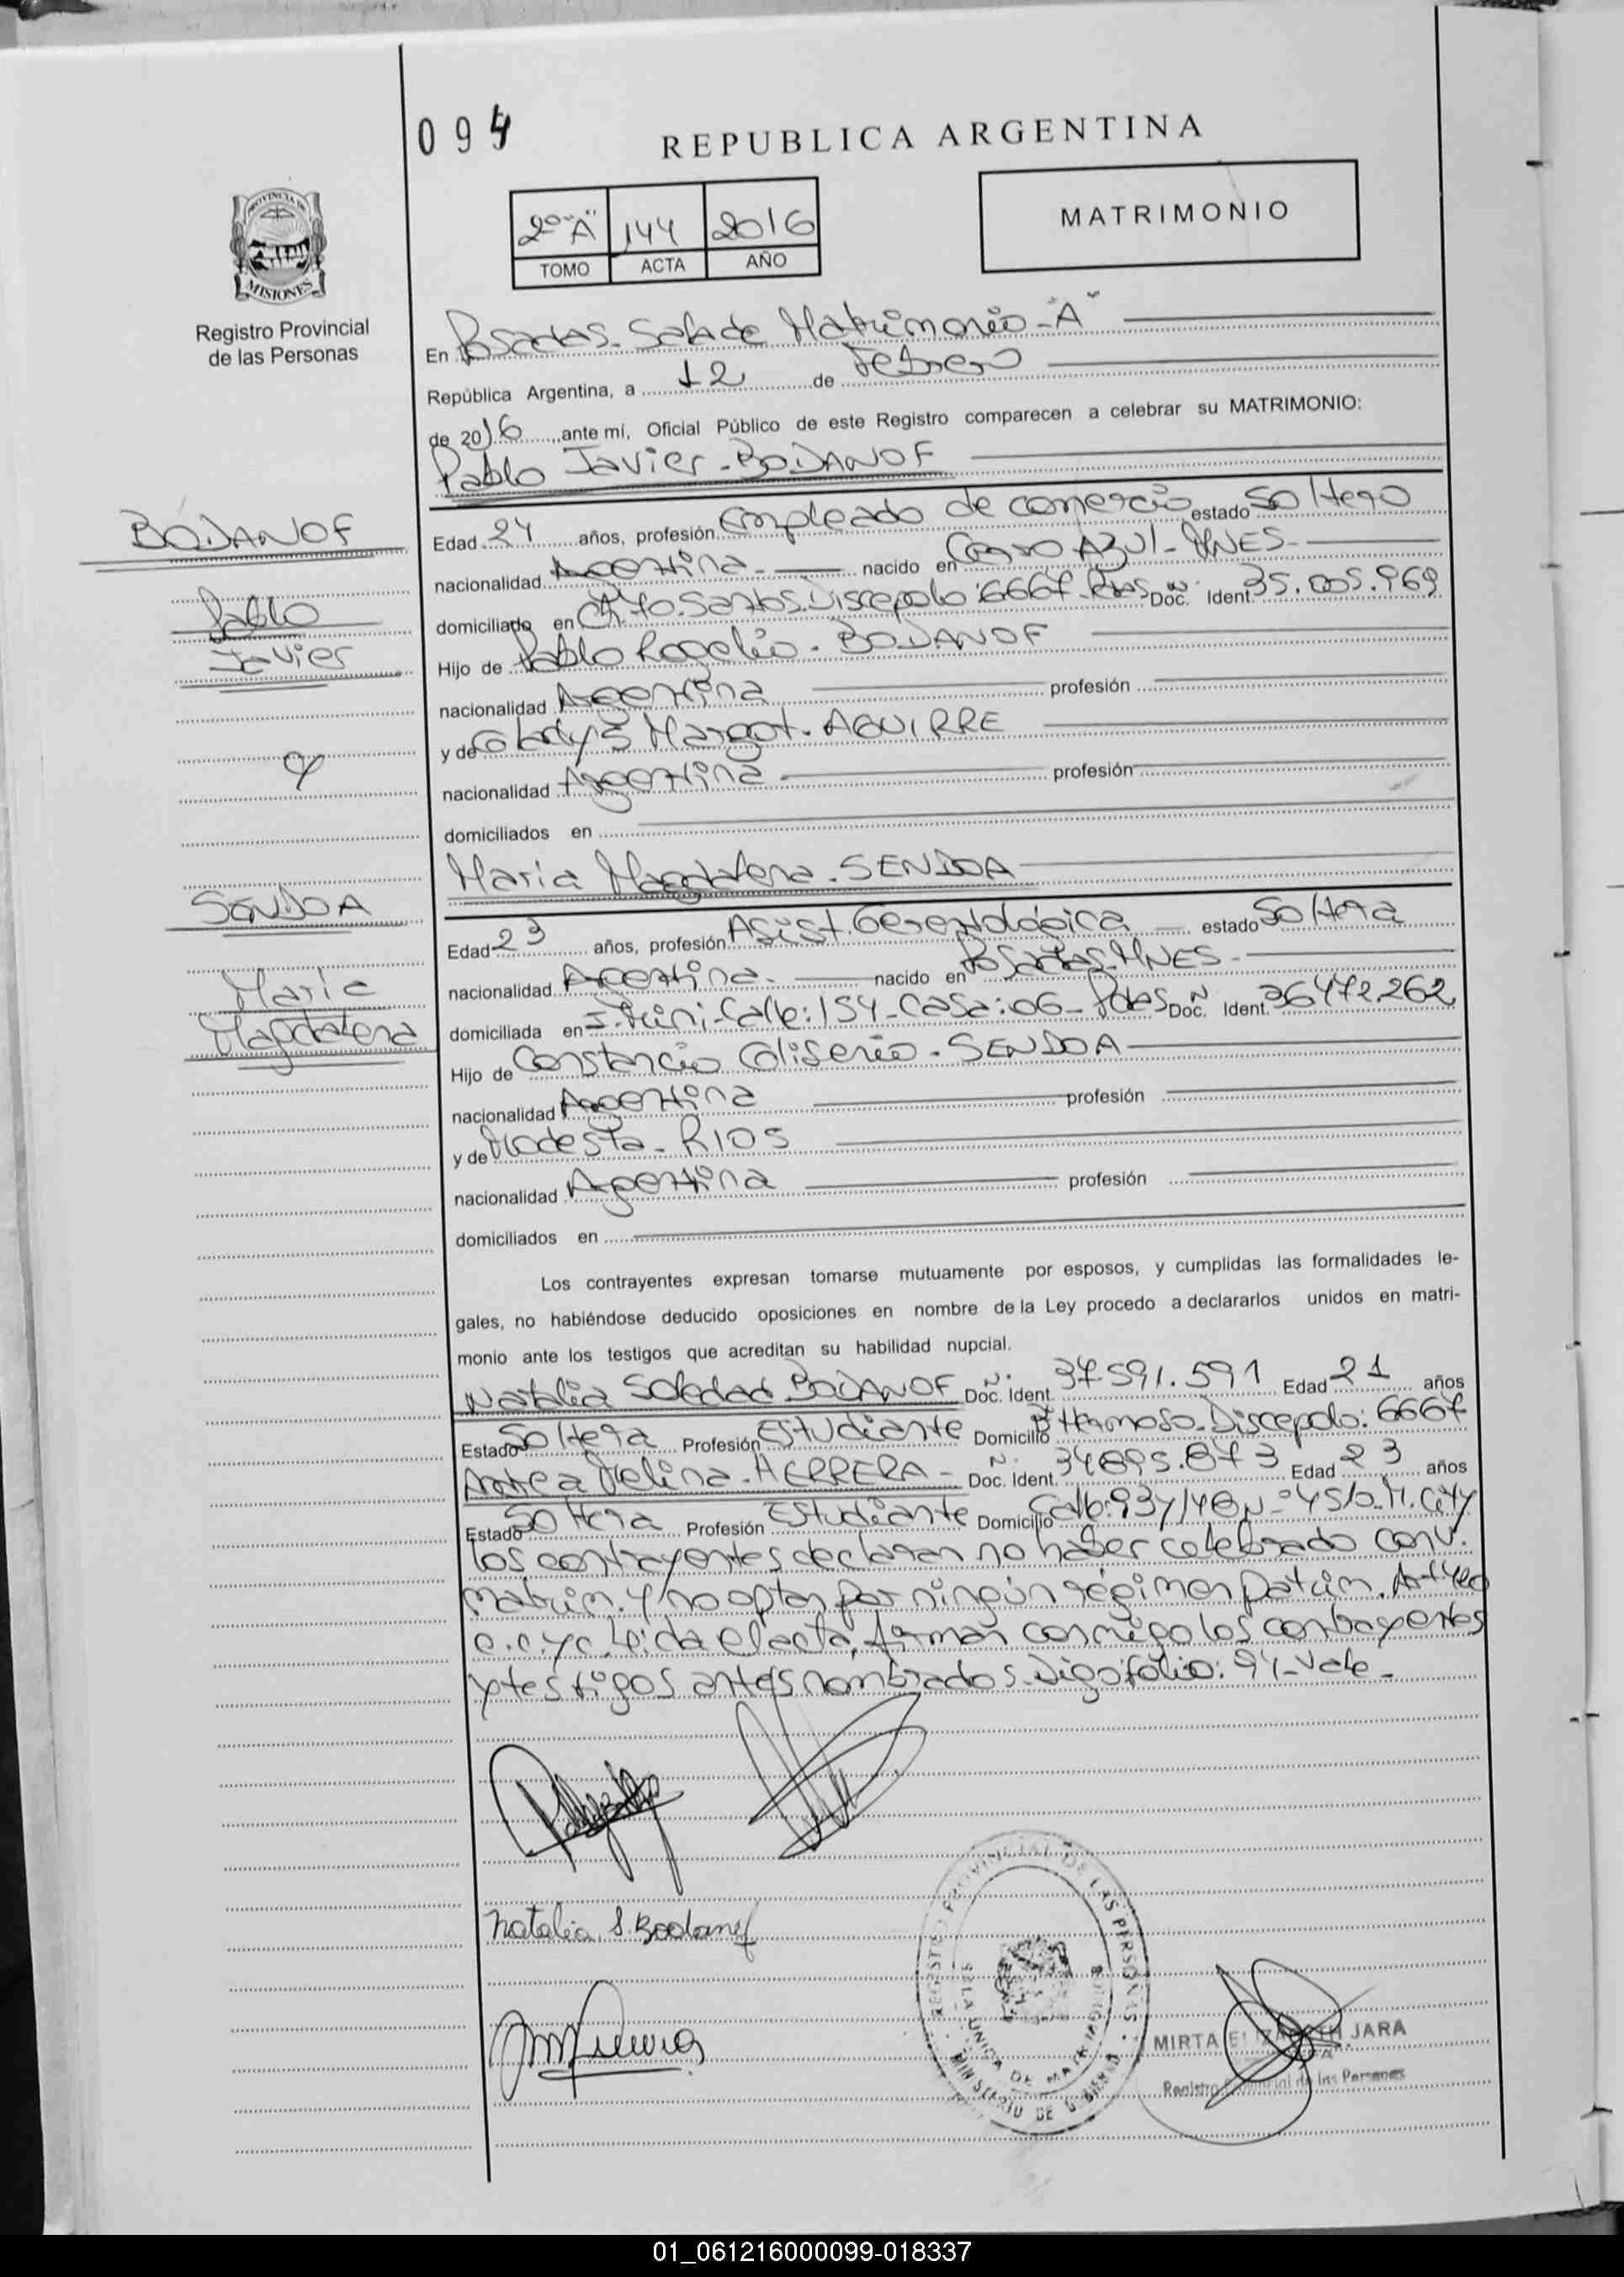 094
REPUBLICA ARGENTINA
PROVINCIA DE
MISIONES
Registro Provincial
de las Personas
2º "A" 144 2016
TOMO ACTA AÑO
MATRIMONIO
En Posadas. Sala de Matrimonio - "A"
República Argentina, a 12 de Febrero
de 2016, ante mí, Oficial Público de este Registro comparecen a celebrar su MATRIMONIO:
Pablo Javier - BODANOF
BODANOF
Pablo
Javier
y
SENDOA
Maria
Magdalena
Edad 24 años, profesión Empleado de comercio estado Soltero
nacionalidad Argentina - nacido en Cerro AZUL - MNES -
domiciliado en Santos Discepolo 6667 - Pdas Doc. Nº Ident. 35.005.969
Hijo de Pablo Rogelio - BODANOF
nacionalidad Argentina profesión
y de Gladys Margot - AGUIRRE
nacionalidad Argentina profesión
domiciliados en
Maria Magdalena - SENDOA
Edad 23 años, profesión Asist. Gerontológica estado Soltera
nacionalidad Argentina - nacido en Posadas - MNES -
domiciliada en Calle: 154 - Casa: 06 - Pdas Doc. Nº Ident. 36472.262
Hijo de Constancio - SENDOA
nacionalidad Argentina profesión
y de Modesta - RIOS
nacionalidad Argentina profesión
domiciliados en
Los contrayentes expresan tomarse mutuamente por esposos, y cumplidas las formalidades le-
gales, no habiéndose deducido oposiciones en nombre de la Ley procedo a declararlos unidos en matri-
monio ante los testigos que acreditan su habilidad nupcial.
Natalia Soledad BODANOF Doc. Nº Ident. 37.591.591 Edad 21 años
Estado Soltera Profesión Estudiante Domicilio Bº Hermoso - Discepolo: 6667
Melina - HERRERA - Doc. Nº Ident. 34895.873 Edad 23 años
Estado Soltera Profesión Estudiante Domicilio M. City
los contrayentes declaran no haber celebrado conv.
matrim. y no optan por ningún régimen patrim. Art
c.c.yc. Leida el acta, firman conmigo los contrayentes
y testigos antes nombrados. Digo folio: 94 - Vale -
Natalia S. Bodanof
REGISTRO PROVINCIAL DE LAS PERSONAS
SALA UNICA DE MATRIMONIOS
MINISTERIO DE GOBIERNO
MIRTA ELIZABETH JARA
Registro Provincial de las Personas
01_061216000099-018337